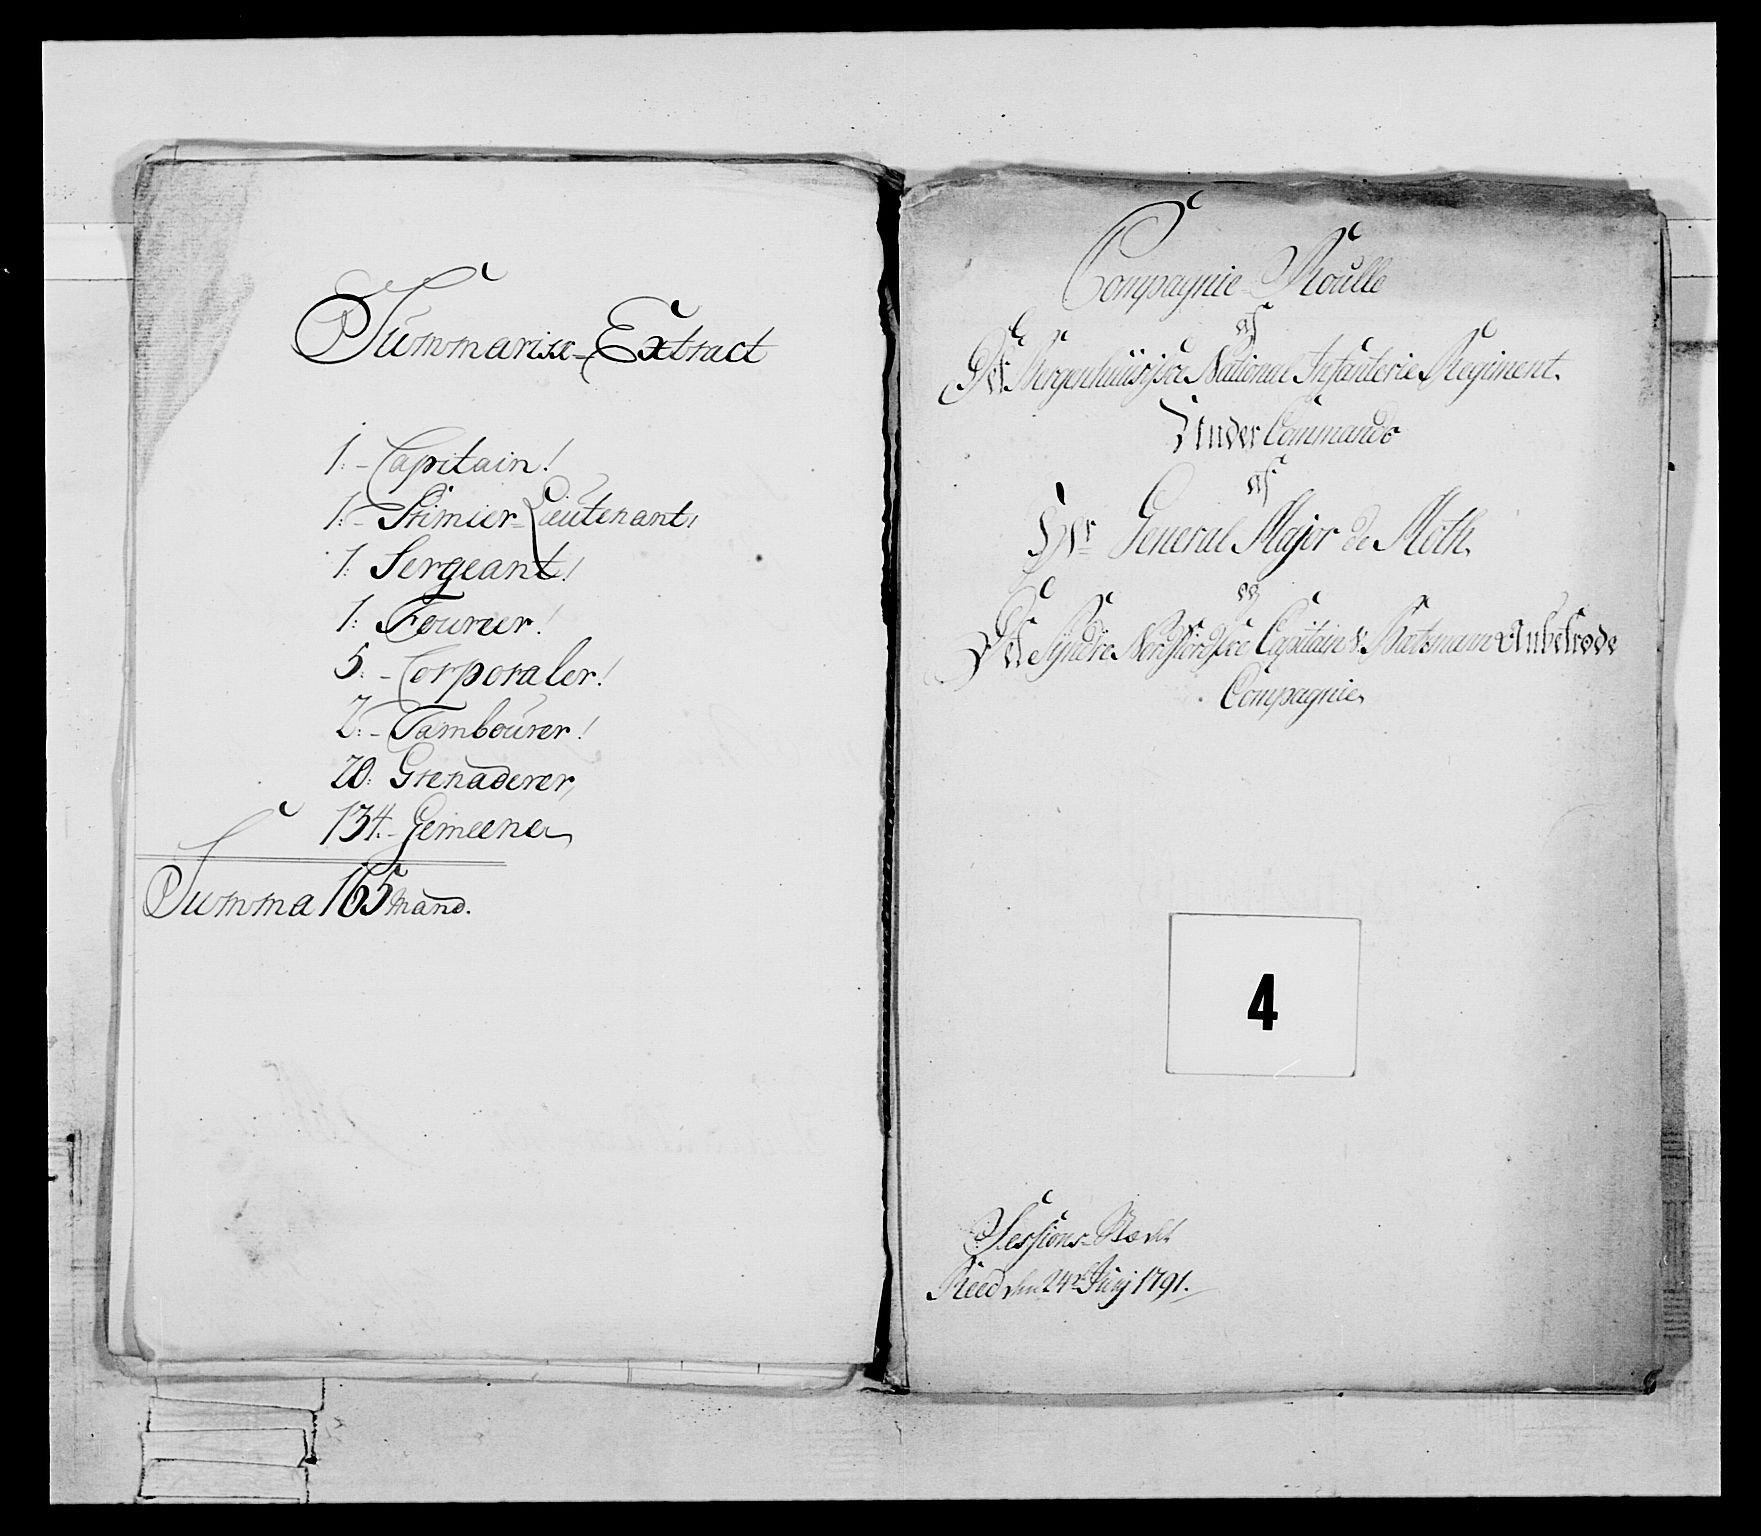 Summarisk-Extract
1:- Capitain!
1:- Primier-Lieutenant!
1: Sergeant!
1: Fourier!
5:- Corporaler!
2:- Tambourer!
20: Grenaderer,
134:- Gemeene
Summa 165 Mand.
Compagnie-Roulle
af
Det Bergenhuusiske National Infanterie Regiment.
Under Commando
af
Hr General Major de Moth.
og
Det Syndre Nordfiordske Capitain v: Anbetroede
Compagnie,
Sessions-
Reed den 24de Junj 1791.
4